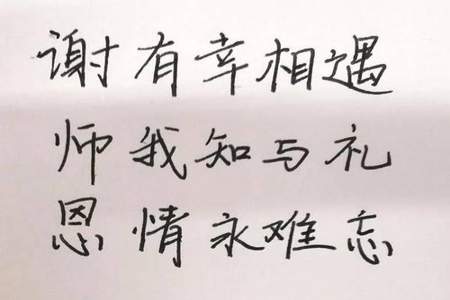 谢有幸相遇
师我知与礼
恩情永难忘